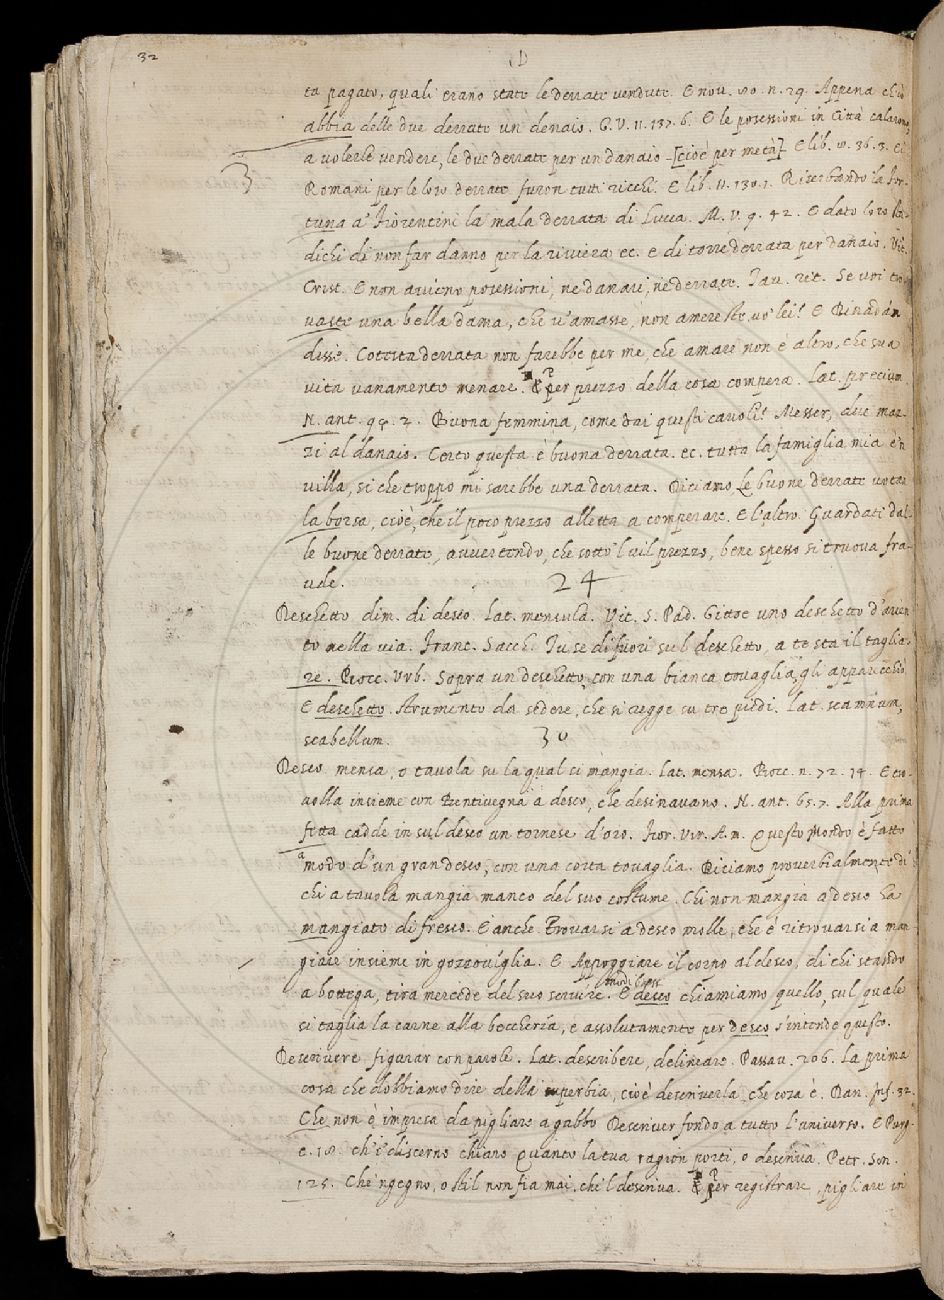 32
D
ta pagato, quali erano state le derrate vendute. E nou. 80. n. 29. Appena ch' io
abbia delle due derrate un denaio. G.V. 11. 137. 6. E le posessioni in Città calarono,
3
a volerle vendere, le due derrate per un danaio [cioè per metà] E lib. 10. 36. 3. Ei
Romani per le loro derrate furon tutti ricchi. E lib. 11. 130. 1. Riserbando la for-
tuna a' Fiorentini la mala derrata di Lucca. M. V. 9. 42. E dato loro sta-
dichi di non far danno per la riviera ec. e di torre derrata per danaio. Vit.
Crist. E non avieno posessioni, ne danari, ne derrate. Tav. rit. Se voi tro-
vaste una bella dama, che v'amasse, non amereste vo' lei? E Dinadan
disse. Cotesta derrata non farebbe per me, che amare non è altro, che sua
vita vanamente menare. E per prezzo della cosa compera. Lat. precium
N. ant. 94. 2. Buona femmina, come dai questi cavoli? Messer, due maz-
zi al danaio. Certo questa è buona derrata. ec. tutta la famiglia mia è 'n
villa, si che troppo mi sarebbe una derrata. Diciamo Le buone derrate votan
la borsa, cioè, che il poco prezzo alletta a comperare. E l'altro Guardati dal-
le buone derrate, avvertendo, che sotto 'l vil prezzo, bene spesso si truova fra-
ude.
24
Deschetto dim. di desco. Lat. mensula. Vit. S. Pad. Gittoe uno deschetto d'arien-
to nella via. Franc. Sacch. Tu se di fuori sul deschetto, a te sta il taglia-
re. Bocc. Urb. Sopra un deschetto, con una bianca tovaglia, gli apparecchiò
E deschetto. Strumento da sedere, che si regge su tre piedi. Lat. scamnum,
scabellum.
30
Desco mensa, o tavola su la qual si mangia. Lat. mensa. Bocc. n. 72. 14. E tro-
volla insieme con Bentivegna a desco, che desinavano. N. ant. 65. 7. Alla prima
fetta cadde in sul desco un tornese d'oro. Fior. Vir. A. m. Questo Mondo è fatto
a modo d'un gran desco, con una corta tovaglia. Diciamo proverbialmente di
chi a tavola mangia manco del suo costume. Chi non mangia a desco ha
mangiato di fresco. E anche Trovarsi a desco molle, che è ritrovarsi a man-
giare insieme in gozzoviglia. E Appoggiare il corpo al desco, di chi stando
a bottega, tira mercede del suo servire. E desco chiamiamo quello, sul quale
si taglia la carne alla beccheria, e assolutamente per desco s'intende questo.
Descrivere figurar con parole. Lat. describere, delineare. Passav. 206. La prima
cosa che dobbiamo dire della superbia, cioè descriverla, che cosa è. Dan. Inf. 32.
Che non è impresa da pigliare a gabbo Descriver fondo a tutto l'universo. E Purg.
c. 18. ch'i' discerno chiaro Quanto la tua ragion porti, o descriva. Petr. Son.
125. Che 'ngegno, o stil non fia mai, che 'l descriva. E per registrare, pigliare in